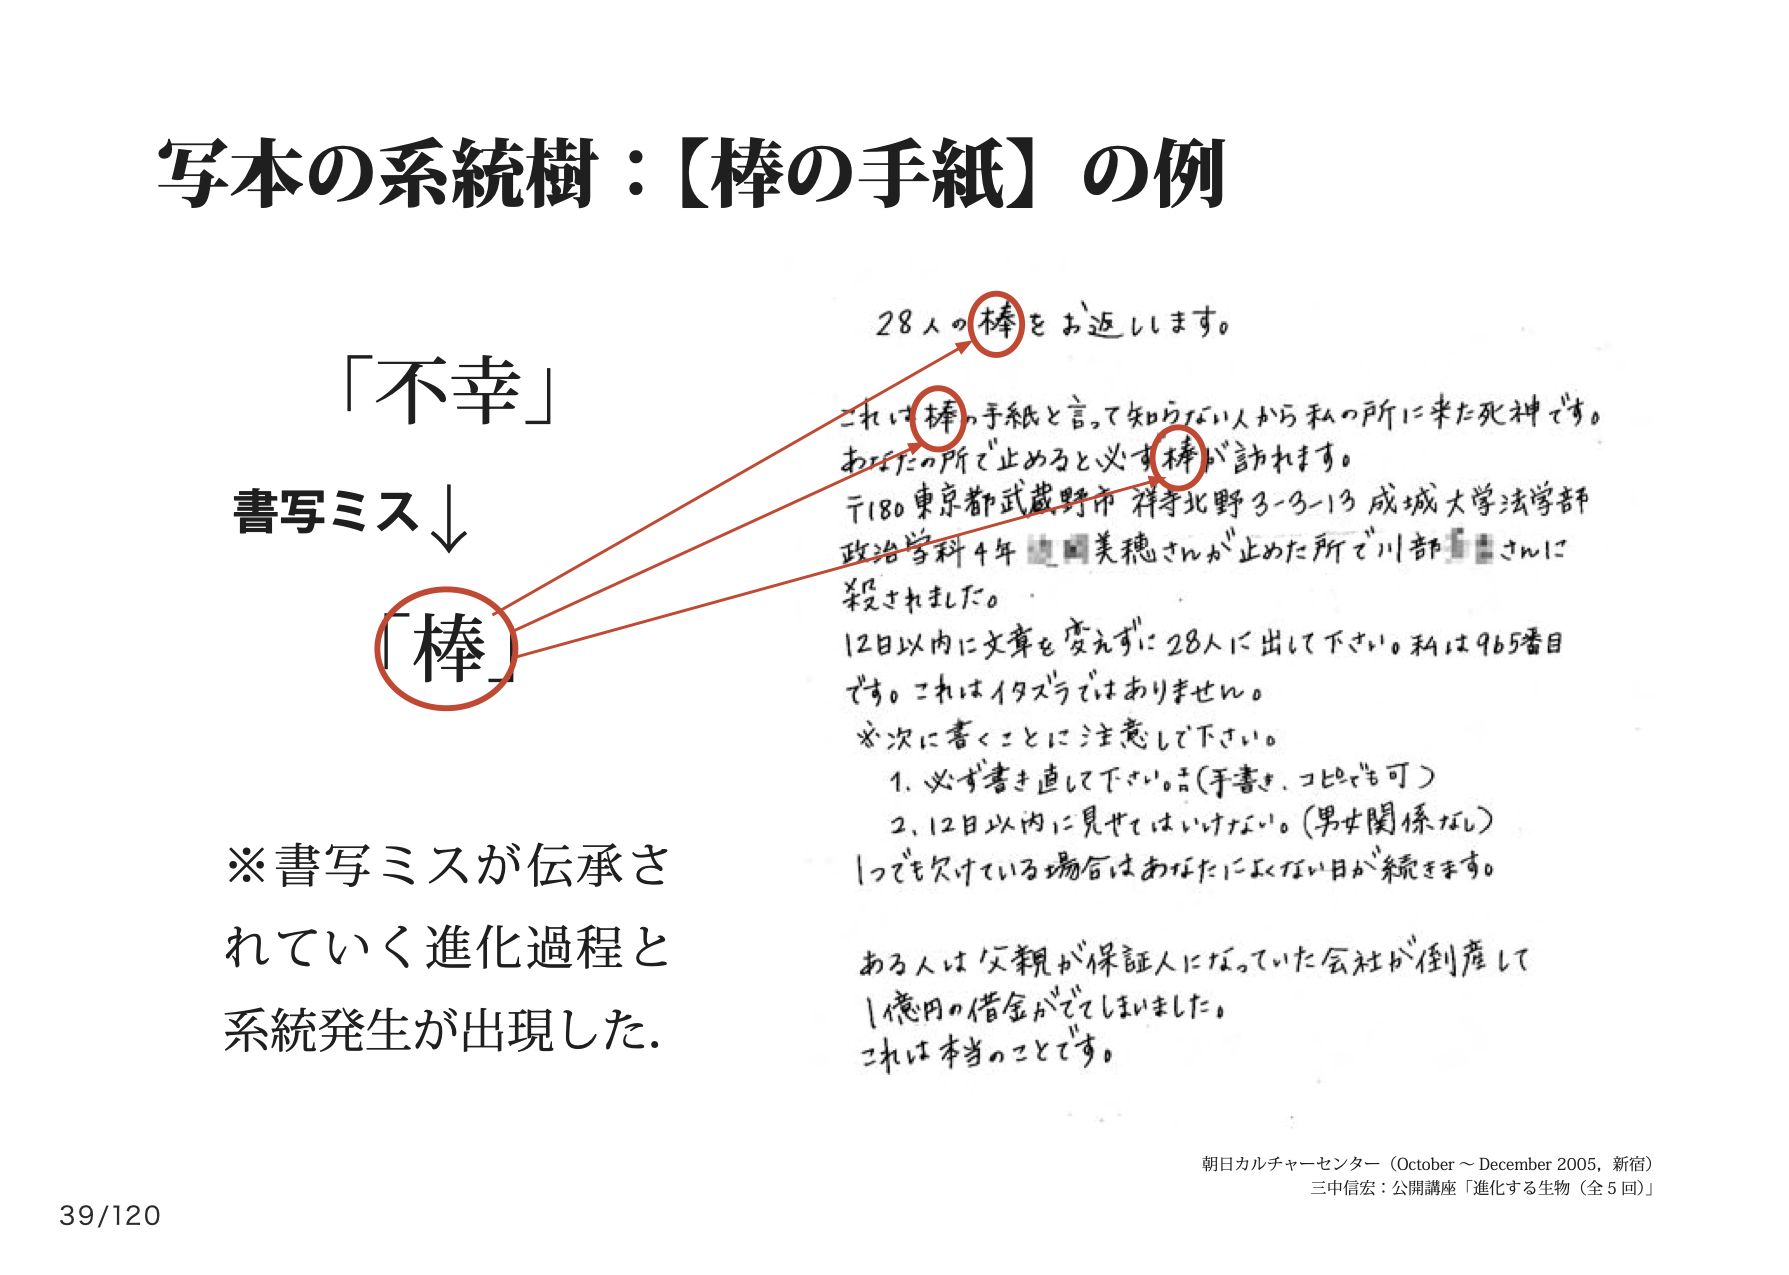 写本の系統樹：【棒の手紙】の例
「不幸」
書写ミス↓
「棒」
※書写ミスが伝承さ
れていく進化過程と
系統発生が出現した.
28人の棒をお返しします。
これは棒の手紙と言って知らない人から私の所に来た死神です。
あなたの所で止めると必ず棒が訪れます。
〒180東京都武蔵野市 祥寺北野3-3-13 成城大学法学部
政治学科4年 美穂さんが止めた所で川部 さんに
殺されました。
12日以内に文章を変えずに28人に出して下さい。私は965番目
です。これはイタズラではありません。
※次に書くことに注意して下さい。
1. 必ず書き直して下さい。(手書き、コピーでも可)
2、12日以内に見せてはいけない。(男女関係なし)
1つでも欠けている場合はあなたによくない日が続きます。
ある人は父親が保証人になっていた会社が倒産して
1億円の借金がでてしまいました。
これは本当のことです。
朝日カルチャーセンター（October ～ December 2005，新宿）
三中信宏：公開講座「進化する生物（全5回）」
39/120